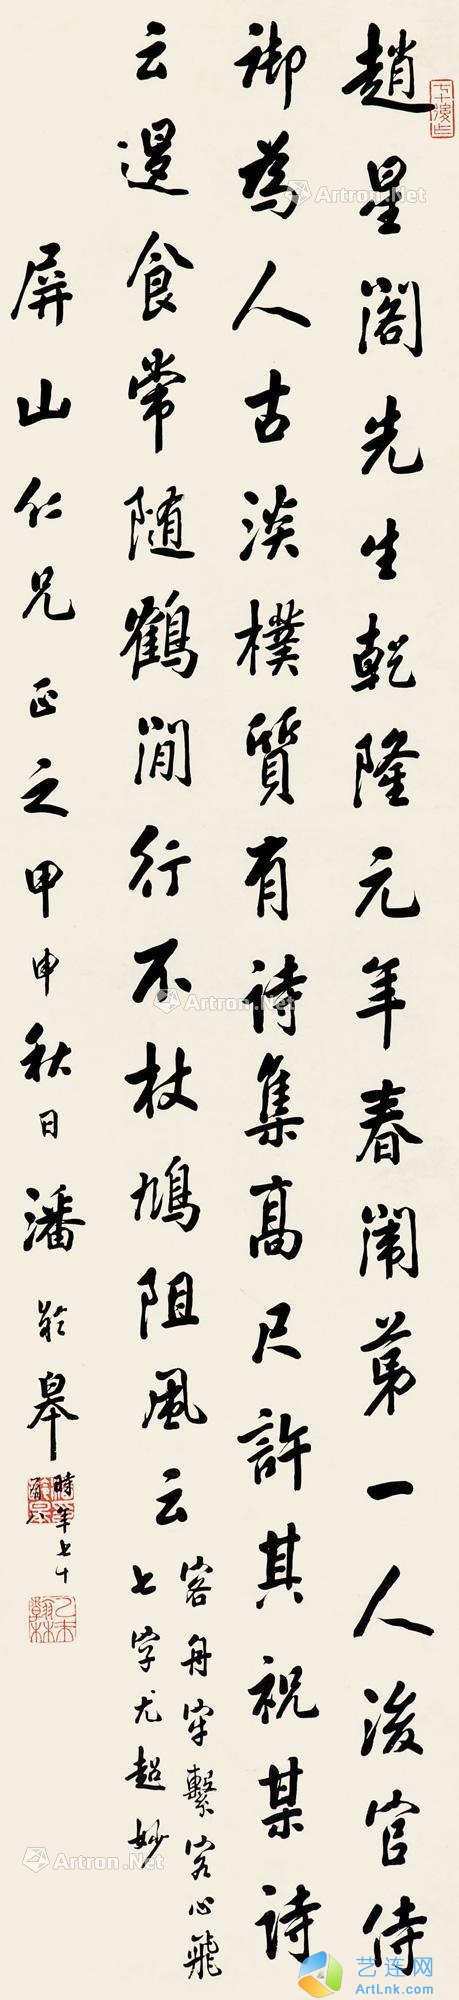 趙星閣先生乾隆元年春闈第一人後官侍
御為人古淡樸質有詩集高尺許其祝某詩
云退食常随鶴閒行不杖鳩阻風云
客舟牢繫客心飛
七字尤超妙
屏山仁兄正之甲申秋日潘齡皋
時年七十有八
乙未翰林
Artron.Net
Artron.Net
Artron.Net
Artron.Net
艺连网
ArtLnk.com